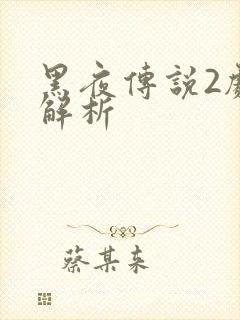 黑夜傳説2
解析
蔡某来